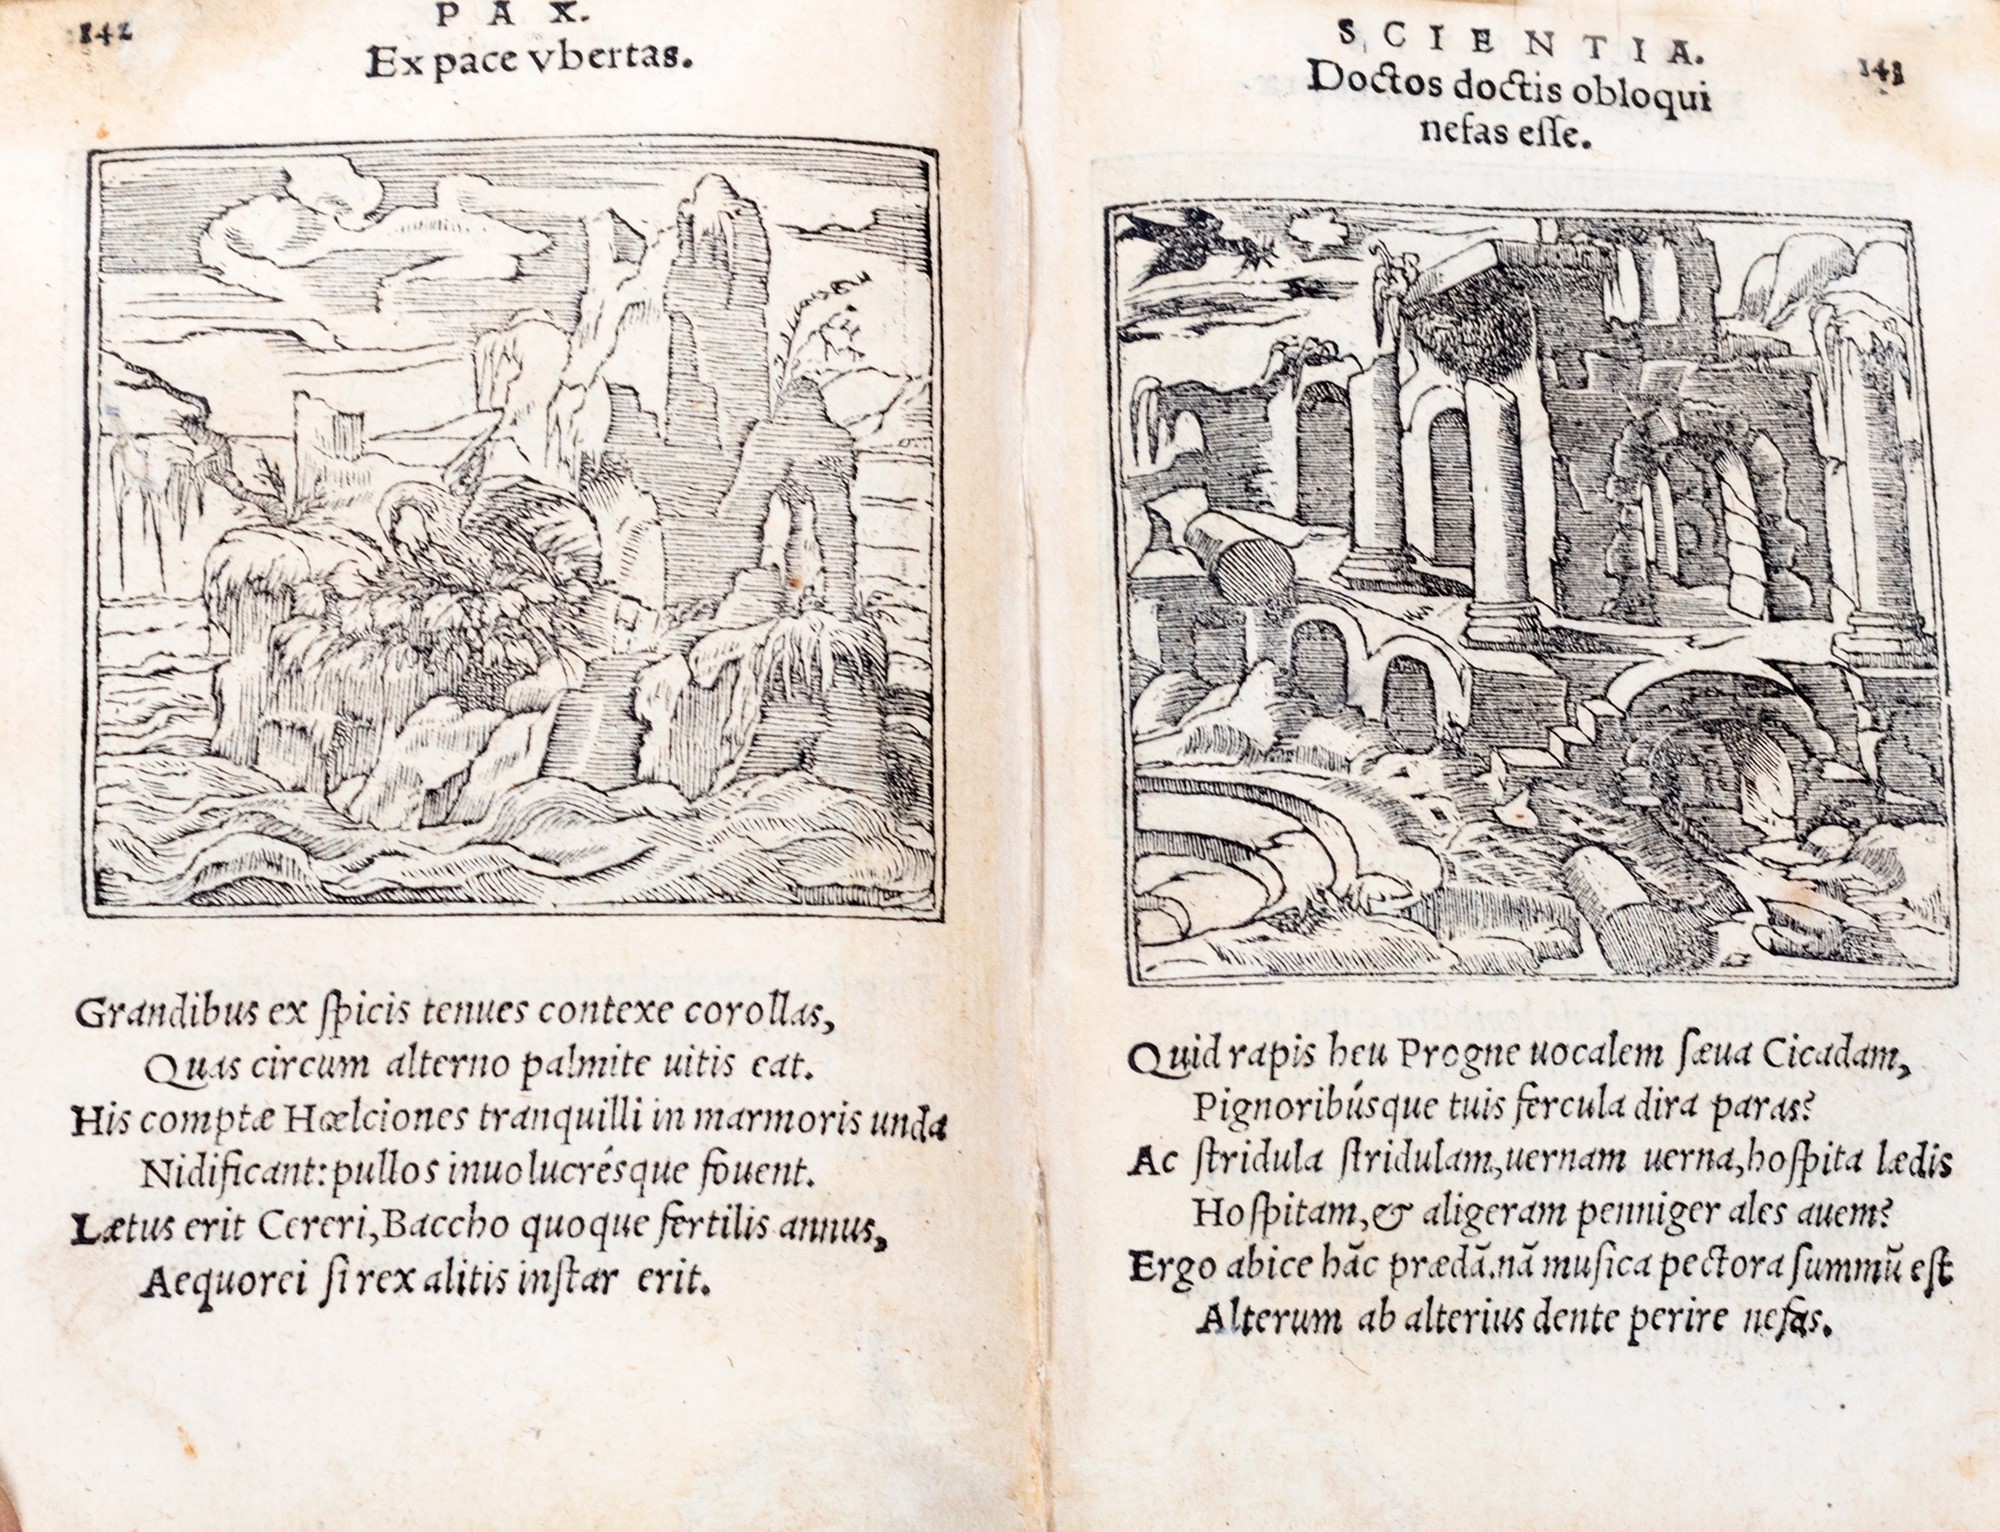 842
PAX.
Ex pace vbertas.
Grandibus ex ſpicis tenues contexe corollas,
Quas circum alterno palmite uitis eat.
His comptæ Hœlciones tranquilli in marmoris unda
Nidificant: pullos inuolucrésque fouent.
Lætus erit Cereri, Baccho quoque fertilis annus,
Aequorei ſi rex alitis inſtar erit.
SCIENTIA.
143
Doctos doctis obloqui
nefas eſſe.
Quid rapis heu Progne uocalem ſæua Cicadam,
Pignoribúsque tuis fercula dira paras?
Ac ſtridula ſtridulam, uernam uerna, hoſpita lædis
Hoſpitam, & aligeram penniger ales auem?
Ergo abice hāc prædā. nā muſica pectora ſummū eſt
Alterum ab alterius dente perire nefas.